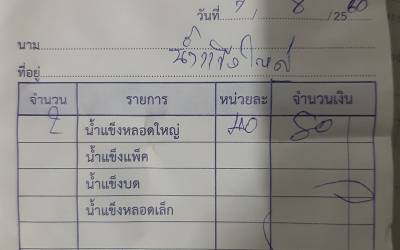 วันที่ 7 / 8 / 2560
นาม
ที่อยู่
จำนวน รายการ หน่วยละ จำนวนเงิน
2 น้ำแข็งหลอดใหญ่ 40 80
น้ำแข็งแพ็ค
น้ำแข็งบด
น้ำแข็งหลอดเล็ก